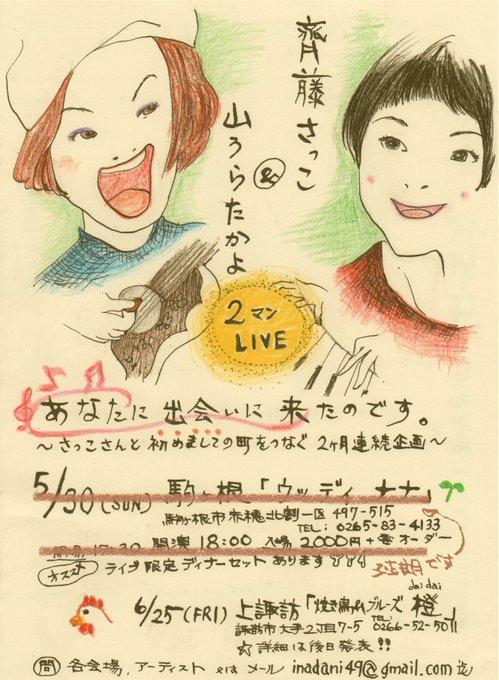 齊藤さっこ
&
山うらたかよ
2マン
LIVE
あなたに出会いに来たのです。
〜さっこさんと初めましての町をつなぐ 2ヶ月連続企画〜
5/30(SUN) 駒ヶ根「ウッディナナ」
駒ヶ根市赤穂北割一区 497-515
TEL: 0265-83-4133
開演 18:00 入場 2,000円+要オーダー
オススメ ライブ限定ディナーセットあります
延期です
6/25(FRI) 上諏訪「焼き鳥ブルーズ 橙」
daidai
諏訪市大手2丁目7-5 TEL: 0266-52-5011
☆詳細は後日発表!!
問 各会場、アーティスト 又は メール inadani49@gmail.com 迄